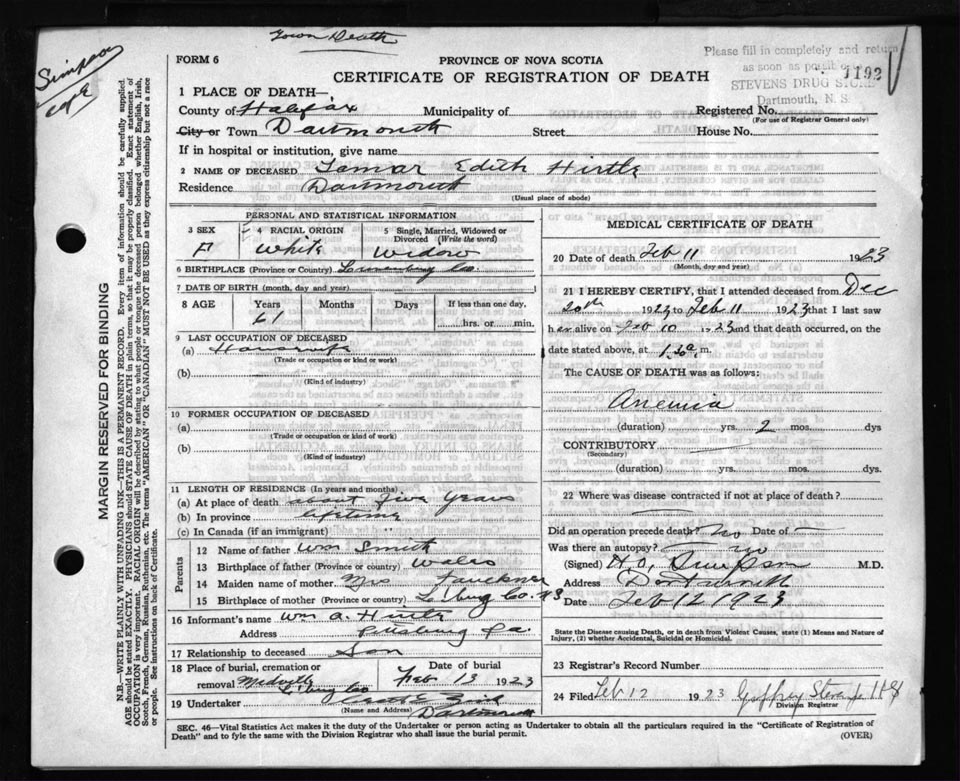 Town Death
Simpson
Please fill in completely and return
as soon as possible
STEVENS DRUG STORE
Dartmouth, N. S.
1192
FORM 6
PROVINCE OF NOVA SCOTIA
CERTIFICATE OF REGISTRATION OF DEATH
1 PLACE OF DEATH—
County of Halifax Municipality of Registered No.
(For use of Registrar General only)
City or Town Dartmouth Street House No.
If in hospital or institution, give name
2 NAME OF DECEASED Tamar Edith Hirtle
Residence Dartmouth
(Usual place of abode)
PERSONAL AND STATISTICAL INFORMATION
3 SEX F
4 RACIAL ORIGIN White
5 Single, Married, Widowed or Divorced (Write the word) Widow
6 BIRTHPLACE (Province or Country) Lunenburg Co.
7 DATE OF BIRTH (month, day and year)
8 AGE Years Months Days If less than one day,
61 hrs. or min.
9 LAST OCCUPATION OF DECEASED
(a) Housewife
(Trade or occupation or kind or work)
(b)
(Kind of industry)
10 FORMER OCCUPATION OF DECEASED
(a)
(Trade or occupation or kind of work)
(b)
(Kind of industry)
11 LENGTH OF RESIDENCE (In years and months)
(a) At place of death about five years
(b) In province lifetime
(c) In Canada (if an immigrant)
Parents
12 Name of father Wm Smith
13 Birthplace of father (Province or country) Wales
14 Maiden name of mother Mrs Faulkner
15 Birthplace of mother (Province or country) L'burg Co. NS
16 Informant's name Wm A. Hirtle
Address Pittsburg Pa.
17 Relationship to deceased Son
18 Place of burial, cremation or removal Date of burial
L'burg Co Feb 13 1923
19 Undertaker
(Name and Address) Dartmouth
MEDICAL CERTIFICATE OF DEATH
20 Date of death Feb 11 1923
(Month, day and year)
21 I HEREBY CERTIFY, that I attended deceased from Dec
20th 1922 to Feb 11 1923 that I last saw
her alive on Feb 10 1923 and that death occurred, on the
date stated above, at 1.30 a. m.
The CAUSE OF DEATH was as follows:
Anemia
(duration) yrs. 2 mos. dys
CONTRIBUTORY
(Secondary)
(duration) yrs. mos. dys
22 Where was disease contracted if not at place of death?
Did an operation precede death? No Date of
Was there an autopsy? No
(Signed) H.O. Simpson M.D.
Address Dartmouth
Date Feb 12 1923
State the Disease causing Death, or in death from Violent Causes, state (1) Means and Nature of
Injury, (2) whether Accidental, Suicidal or Homicidal.
23 Registrar's Record Number
24 Filed Feb 12 1923 Geoffrey Stevens
Division Registrar
SEC. 46—Vital Statistics Act makes it the duty of the Undertaker or person acting as Undertaker to obtain all the particulars required in the "Certificate of Registration of
Death" and to fyle the same with the Division Registrar who shall issue the burial permit.
(OVER)
MARGIN RESERVED FOR BINDING
N.B.—WRITE PLAINLY WITH UNFADING INK—THIS IS A PERMANENT RECORD. Every item of information should be carefully supplied.
AGE should be stated EXACTLY. PHYSICIANS should state CAUSE OF DEATH in plain terms, so that it may be properly classified. Exact statement of
OCCUPATION is very important. RACIAL ORIGIN will be described by stating to what people or tongue the deceased person belonged whether English, Irish,
Scotch, French, German, Russian, Ruthenian, etc. The terms "AMERICAN" OR "CANADIAN" MUST NOT BE USED as they express citizenship but not a race
or people. See instructions on back of Certificate.